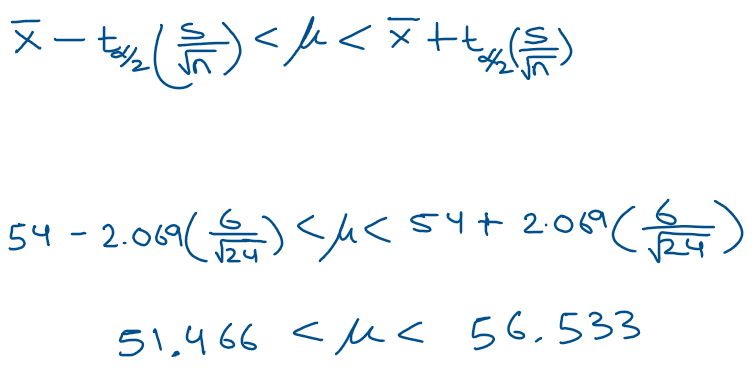 x̄ − t_{α/2} (s/√n) < μ < x̄ + t_{α/2} (s/√n)
54 − 2.069 (6/√24) < μ < 54 + 2.069 (6/√24)
51.466 < μ < 56.533